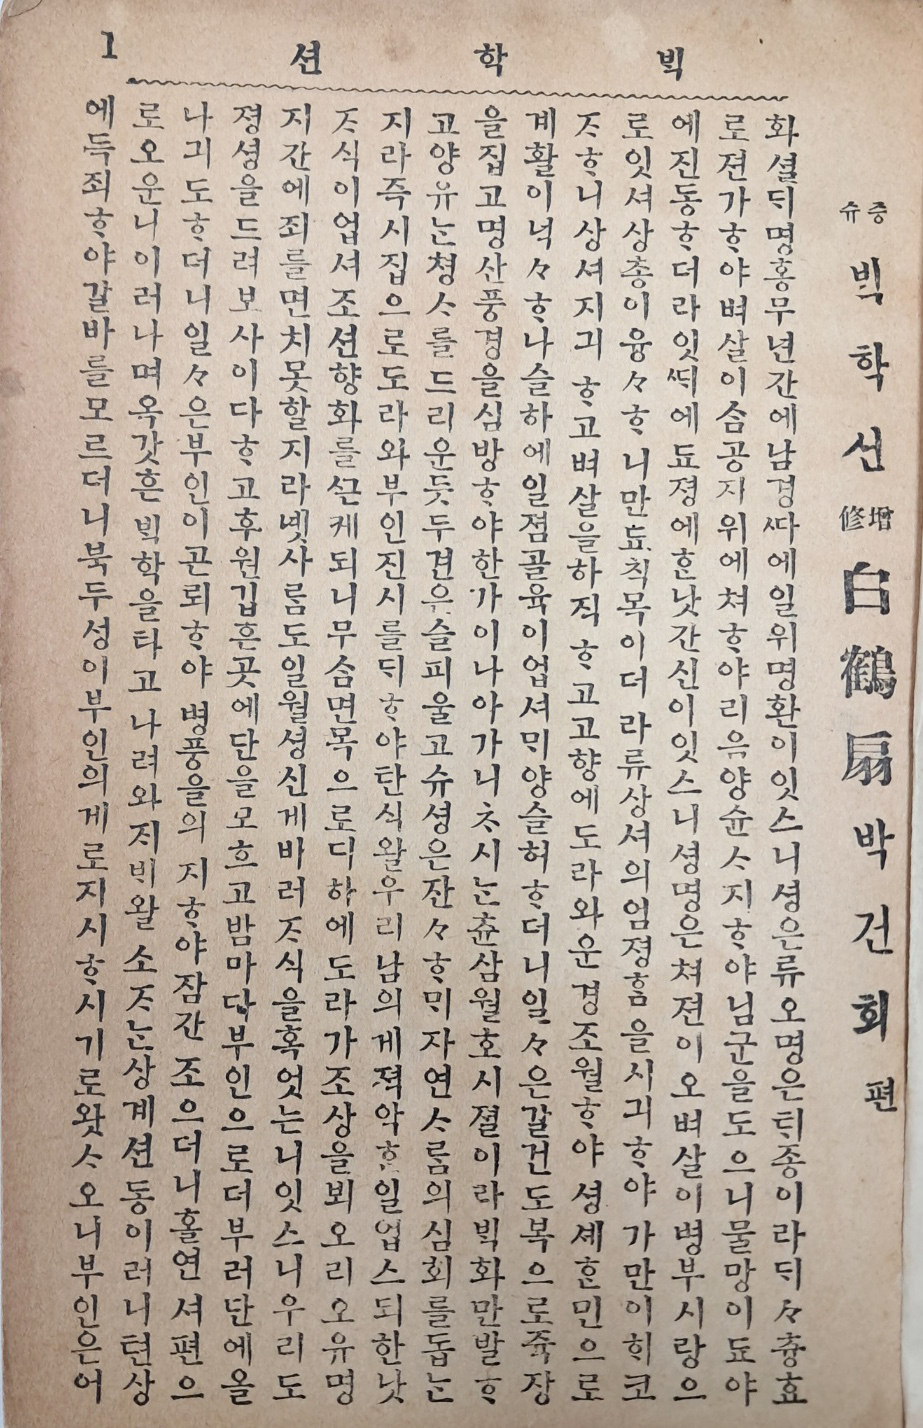 ᄇᆡᆨ학션
1
증슈 ᄇᆡᆨ학선 增修 白鶴扇 박건회 편
화셜ᄃᆡ명홍무년간에남경ᄯᅡ에일위명환이잇스니셩은류오명은ᄐᆡ종이라ᄃᆡ々츙효
로젼가ᄒᆞ야벼살이ᄉᆞᆷ공지위에쳐ᄒᆞ야리음양슌ᄉᆞ지ᄒᆞ야님군을도으니물망이됴야
에진동ᄒᆞ더라잇ᄯᆡ에됴졍에ᄒᆞᆫ낫간신이잇스니셩명은쳐젼이오벼살이병부시랑으
로잇셔상총이융々ᄒᆞ니만됴칙목이더라류상셔의엄졍ᄒᆞᆷ을시긔ᄒᆞ야가만이ᄒᆡ코
ᄌᆞᄒᆞ니상셔지긔ᄒᆞ고벼살을하직ᄒᆞ고고향에도라와운경조월ᄒᆞ야셩셰ᄒᆞᆫ민으로
계활이넉々ᄒᆞ나슬하에일졈골육이업셔ᄆᆡ양슬허ᄒᆞ더니일々은갈건도복으로쥭장
을집고명산풍경을심방ᄒᆞ야한가이나아가니ᄎᆞ시ᄂᆞᆫ츈삼월호시졀이라ᄇᆡᆨ화만발ᄒᆞ
고양유ᄂᆞᆫ쳥ᄉᆞ를드리운듯두견은슬피울고슈셩은잔々ᄒᆞᄆᆡ자연ᄉᆞᄅᆞᆷ의심회를돕ᄂᆞᆫ
지라즉시집으로도라와부인진시를ᄃᆡᄒᆞ야탄식왈우리남의게젹악ᄒᆞᆫ일업스되한낫
ᄌᆞ식이업셔조션향화를ᄭᅳᆫ케되니무ᄉᆞᆷ면목으로디하에도라가조상을뵈오리오유명
지간에죄를면치못할지라녯사ᄅᆞᆷ도일월셩신게바러ᄌᆞ식을혹엇는니잇스니우리도
졍셩을드려보사이다ᄒᆞ고후원깁흔곳에단을모흐고밤마다부인으로더부러단에올
나긔도ᄒᆞ더니일々은부인이곤뢰ᄒᆞ야병풍을의지ᄒᆞ야잠간조으더니홀연셔편으
로오운니이러나며옥갓흔ᄇᆡᆨ학을타고나려와ᄌᆡᄇᆡ왈소ᄌᆞᄂᆞᆫ상계션동이러니텬상
에득죄ᄒᆞ야갈바를모르더니북두성이부인의게로지시ᄒᆞ시기로왓ᄉᆞ오니부인은어